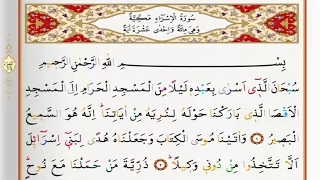 سُورَةُ الْإِسْرَاءِ مَكِّيَّةٌ
وَهِيَ مِائَةٌ وَإِحْدٰى عَشْرَةَ اٰيَةً
بِسْمِ اللّٰهِ الرَّحْمٰنِ الرَّحِيمِ
سُبْحَانَ الَّذٖٓى اَسْرٰى بِعَبْدِهٖ لَيْلًا مِنَ الْمَسْجِدِ الْحَرَامِ اِلَى الْمَسْجِدِ
الْاَقْصَا الَّذٖى بَارَكْنَا حَوْلَهُ لِنُرِيَهُ مِنْ اٰيَاتِنَاؕ اِنَّهُ هُوَ السَّمٖيعُ
الْبَصٖيرُ وَاٰتَيْنَا مُوسَى الْكِتَابَ وَجَعَلْنَاهُ هُدًى لِبَنٖٓى اِسْرَٓائٖلَ
اَلَّا تَتَّخِذُوا مِنْ دُونٖى وَكٖيلًا ذُرِّيَّةَ مَنْ حَمَلْنَا مَعَ نُوحٍ